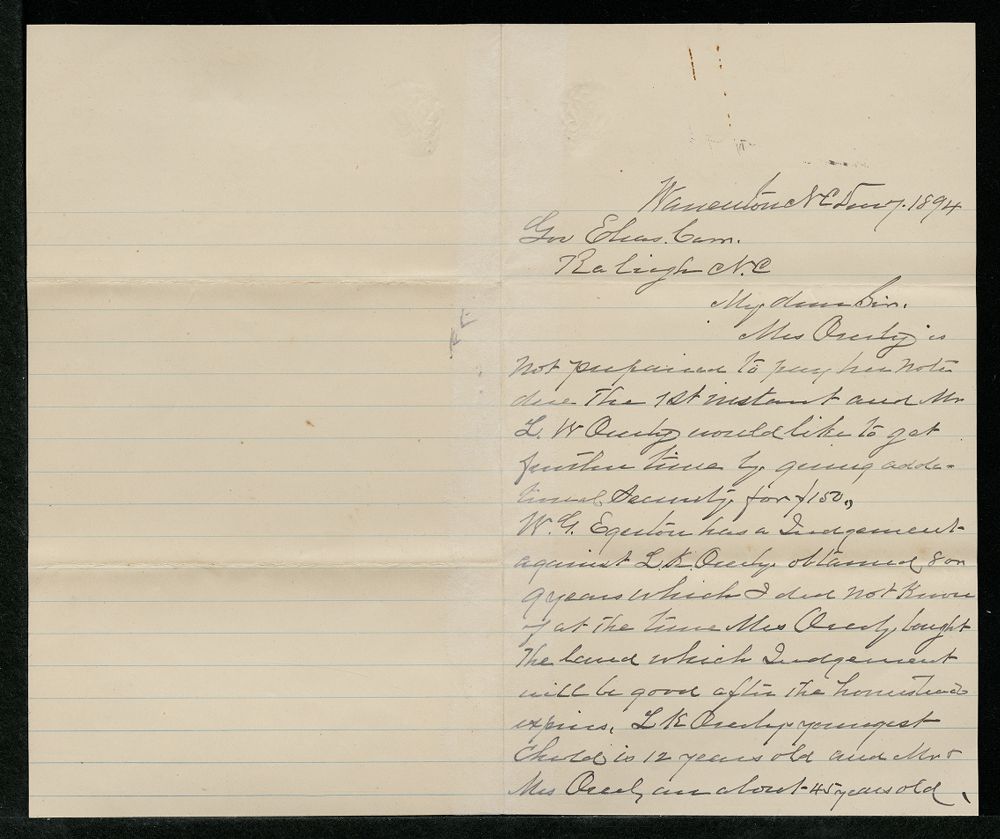 Warrenton N.C. Dec 7. 1894
Gov Elias. Carr.
Raleigh N.C
My dear Sir.
Mrs Overby is
not prepaired to pay her note
due the 1st instant and Mr
L. W Overby would like to get
further time by giving adda-
tional Security for $150,
W. G. Egerton has a Judgement
against L. K. Overby obtained 8 or
9 years which I did not Know
of at the time Mrs Overby bought
the land which Judgement
will be good after the homestead
expires. L K Overby youngest
Child is 12 years old and Mr &
Mrs Overby are about 45 years old,